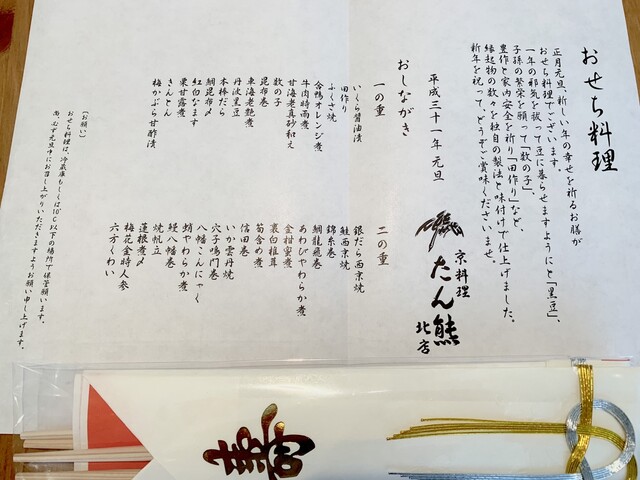 おせち料理
正月元旦、新しい年の幸せを祈るお膳が
おせち料理でございます。
一年の邪気を祓って豆に暮らせますようにと「黒豆」、
子孫の繁栄を願って「数の子」
豊作と家内安全を祈り「田作り」など、
縁起物の数々を独自の製法と味付けで仕上げました。
新年を祝って、どうぞご賞味くださいませ。
平成三十一年 元旦
京料理
たん熊
北店
おしながき
一の重
いくら醤油漬
田作り
ふくさ焼
合鴨オレンジ煮
牛肉時雨煮
甘海老真砂和え
数の子
昆布巻
車海老艶煮
丹波黒豆
本棒だら
鯛昆布〆
紅白なます
きんとん
栗甘露煮
梅かぶら甘酢漬
二の重
銀だら西京焼
鮭西京焼
錦糸巻
鯛龍飛巻
あわびやわらか煮
金柑蜜煮
裏白椎茸
筍含め煮
信田巻
いか雲丹焼
穴子鳴門巻
八幡こんにゃく
蛸やわらか煮
鰻八幡巻
焼帆立
蓮根煮〆
梅花金時人参
六方くわい
〔お願い〕
おせち料理は、冷蔵庫もしくは10℃以下の場所で保管願います。
尚、必ず元旦中にお召し上がりいただきますようお願い申し上げます。
寿